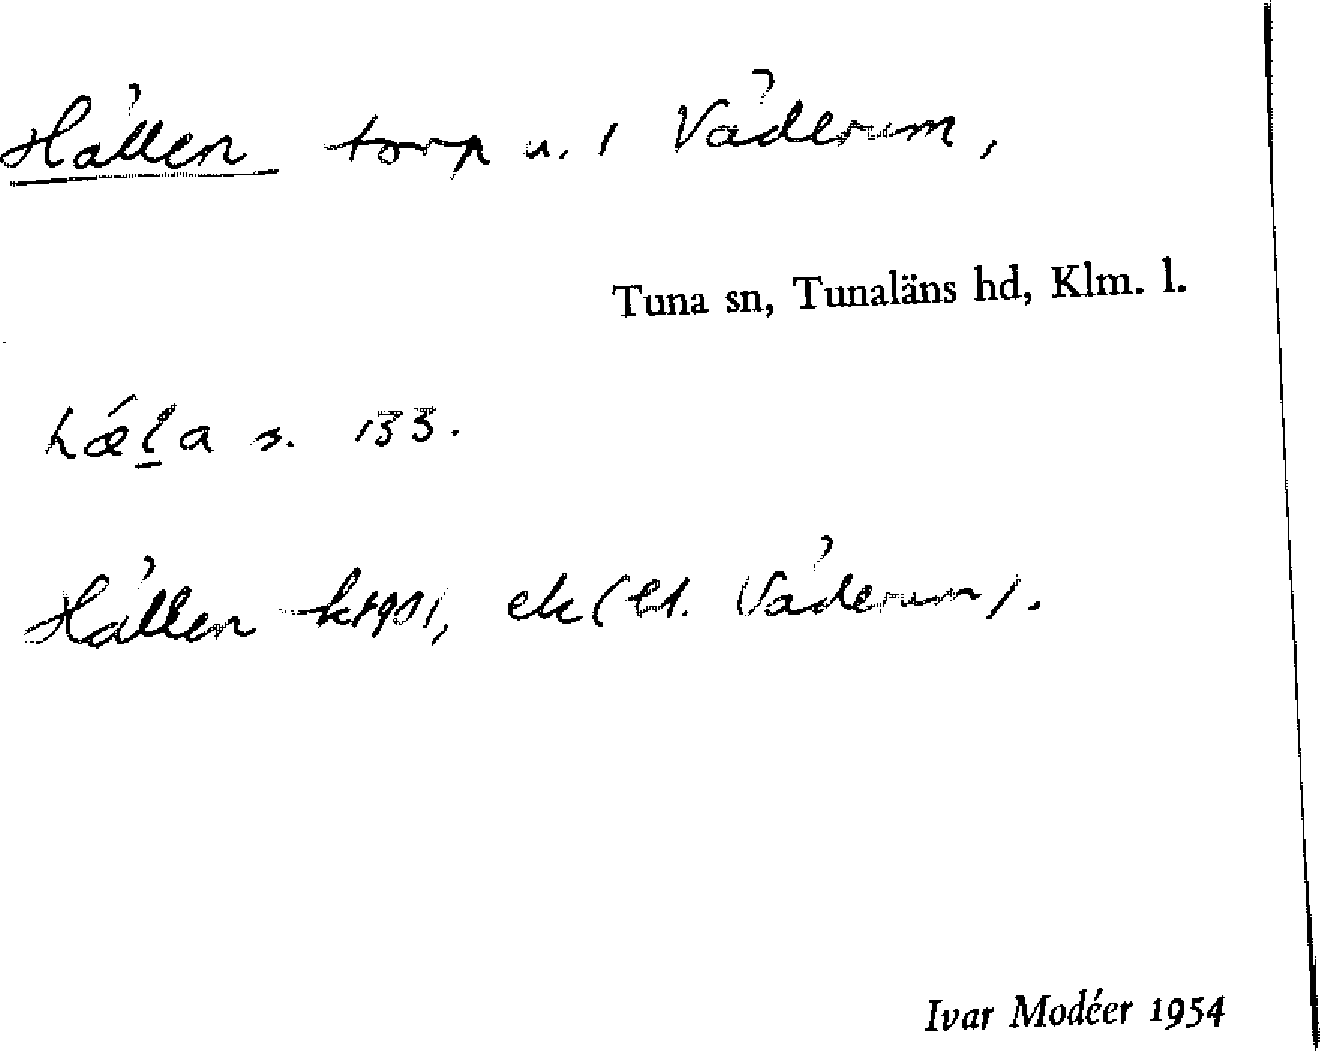 Hällen torp u. 1 Väderum,
Tuna sn, Tunaläns hd, Klm. l.
hǽl̲a s. 133.
Hällen k1901, ek (u. Väderum).
Ivar Modéer 1954